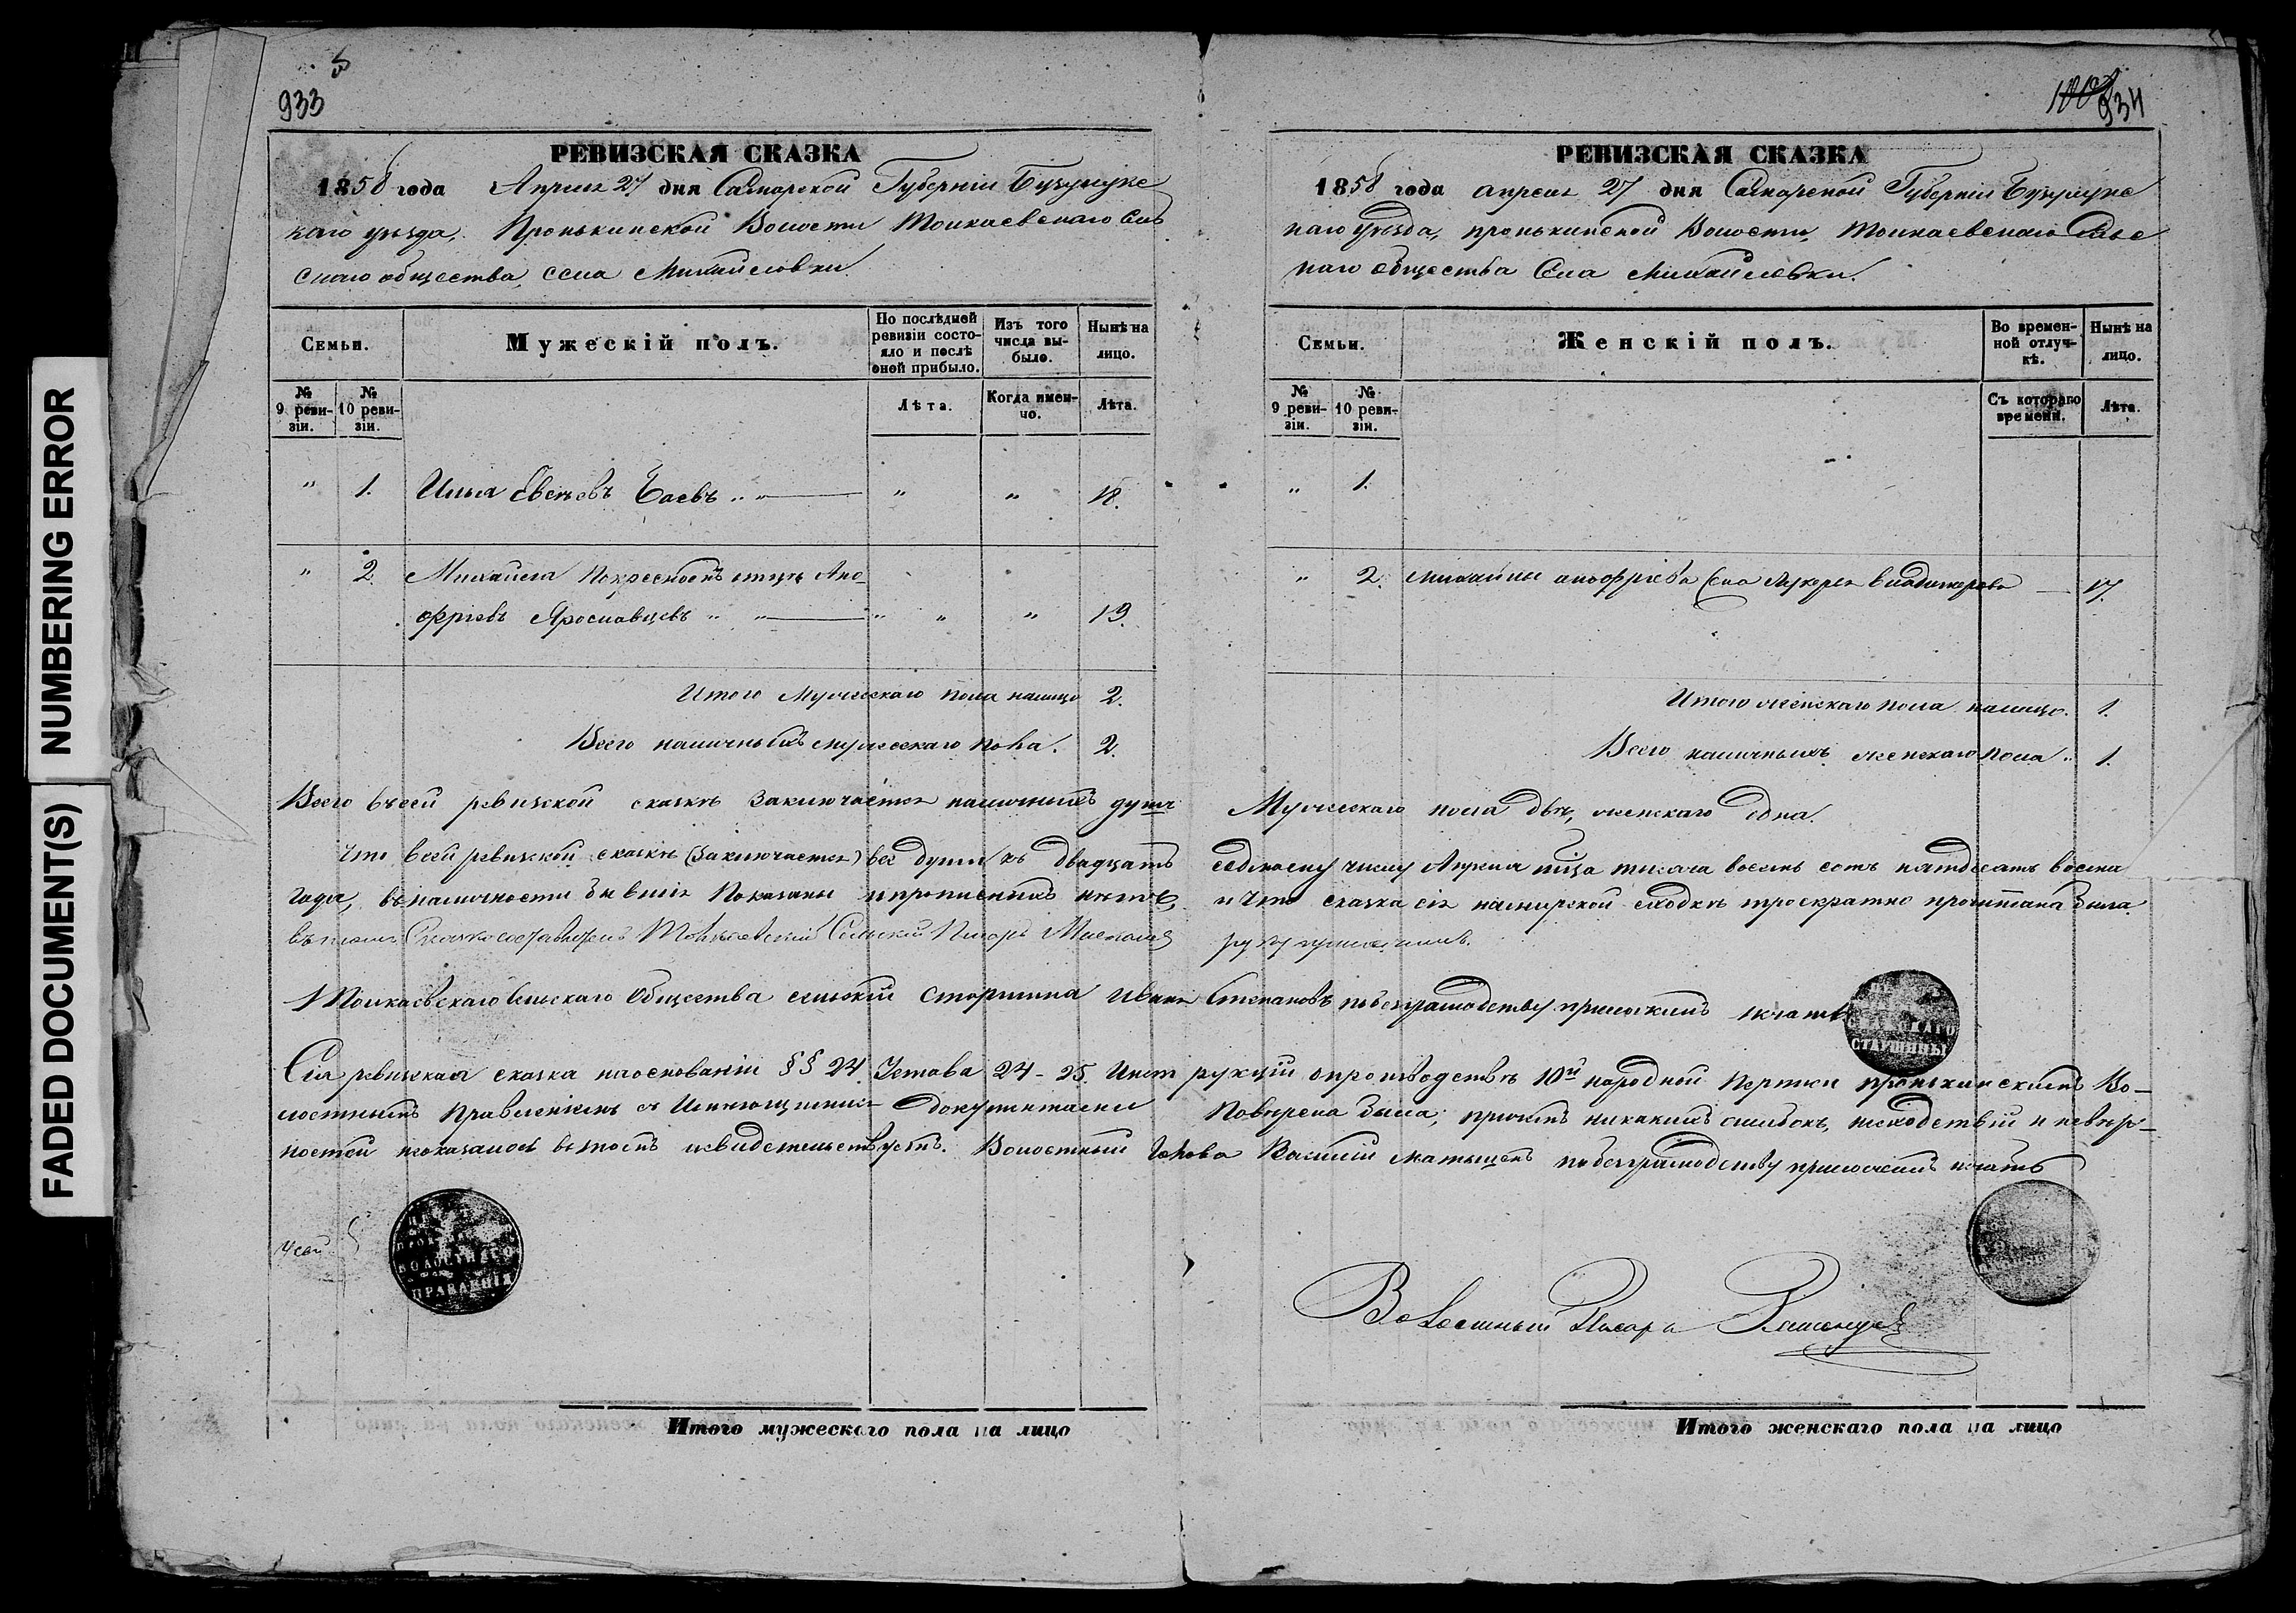 NUMBERING ERROR
FADED DOCUMENT(S)
933
РЕВИЗСКАЯ СКАЗКА
1858 года Апреля 27 дня Самарской Губерніи Бузулукс
каго уѣзда, Пронькинской Волости Толкаевскаго Сель
скаго общества, села Михайловки.
Семьи.
Мужескій полъ.
По послѣдней ревизіи состояло и послѣ оной прибыло.
Изъ того числа выбыло.
Нынѣ на лицо.
№ 9 ревизіи.
№ 10 ревизіи.
Лѣта.
Когда именно.
Лѣта.
" 1. Илья Евсѣевъ " " 18.
" 2. Михайла по крестномъ отцѣ Ано
фріевъ Ярославцевъ " " " " 19.
Итого мужескаго пола налицо 2.
Всего наличныхъ мужескаго пола. 2.
934
РЕВИЗСКАЯ СКАЗКА
1858 года апреля 27 дня Самарской Губерніи Бузулукс
каго Уѣзда, пронькинской Волости, Толкаевскаго Сельс
каго общества Села Михайловки.
Семьи.
Женскій полъ.
Во временной отлучкѣ.
Нынѣ на лицо.
№ 9 ревизіи.
№ 10 ревизіи.
Съ котораго времени.
Лѣта.
" 1.
" 2. Михайлы анофріева жена Лукерья владимерова 17.
Итого женскаго пола налицо. 1.
Всего наличныхъ женскаго пола " 1.
Всего въ сей ревизской сказкѣ заключается наличныхъ душъ Мужескаго пола двѣ, женскаго одна.
Что в сей ревизской сказкѣ (заключается) все души къ двадцать седьмому числу Апреля мца тысяча восемь сотъ пятдесятъ восма
года, въ наличности бывшія показаны и прописныхъ нѣтъ, и что сказка сія на мирской сходкѣ троекратно прочитана была.
въ томъ Толкаевскій Сельскій Писарь руку приложилъ.
Толкаевскаго Сельскаго Общества сельскій старшина Иванъ Степановъ по безграмотству приложилъ печать
СТАРШИНЫ
Сія ревизская сказка на основаніи §§ 24. Устава 24 - 25. Инструкціи о производствѣ 10й народной Переписи пронькинскимъ Во-
лостнымъ Правленіемъ съ имѣющимися документами повѣрена была; причемъ никакихъ ошибокъ, несходствій и невѣр-
ностей не оказалось въ томъ и свидетельствуетъ. Волостный Голова Василій по безграмотству приложилъ печать
ВОЛОСТНАГО
ПРАВЛЕНІЯ
Волостный Писарь
Итого мужескаго пола на лицо
Итого женскаго пола на лицо